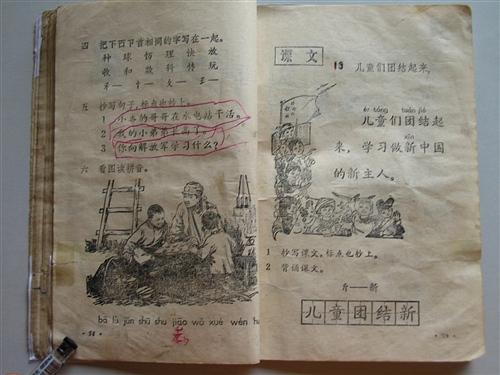 四 把下面部首相同的字写在一起。
种 球 物 理 快 放
教 和 数 科 特 玩
五 抄写句子，标点也抄上。
1 小力的哥哥在水电站干活。
2 我的小弟弟长高了。
3 你向解放军学习什么？
六 看图读拼音。
bā lù jūn shū shu jiāo wǒ xué wén
课文
13 儿童们团结起来
ér tóng tuán jié
儿童们团结起
xīn
来，学习做新中国
的新主人。
1 抄写课文，标点也抄上。
2 背诵课文。
斤——新
儿童团结新